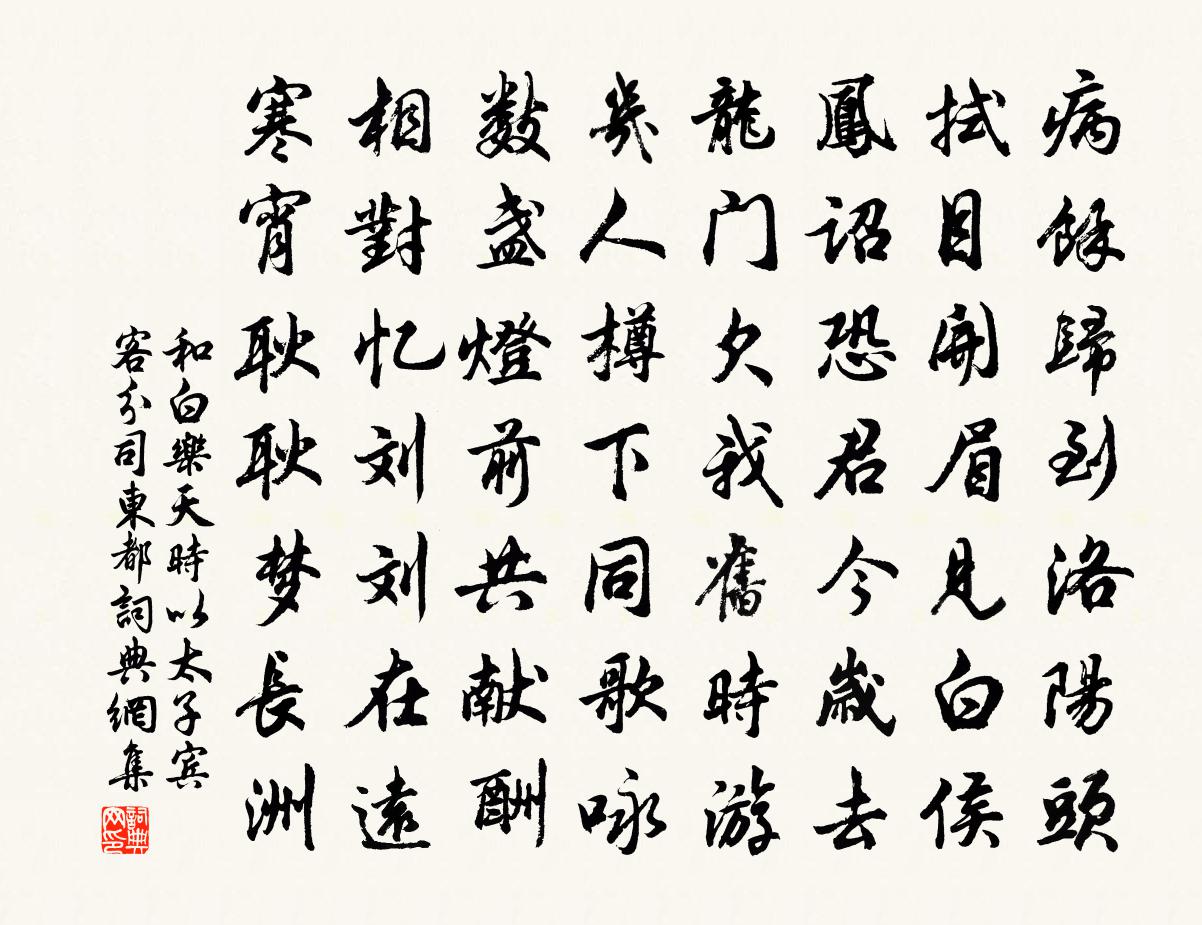 病馀歸到洛陽頭
拭目開眉見白侯
鳳詔恐君今歲去
龍门欠我舊時游
幾人樽下同歌咏
数盏燈前共献酬
相對忆刘刘在遠
寒宵耿耿梦長洲
和白樂天時以太子宾
客分司東都詞典網集
詞典
网印